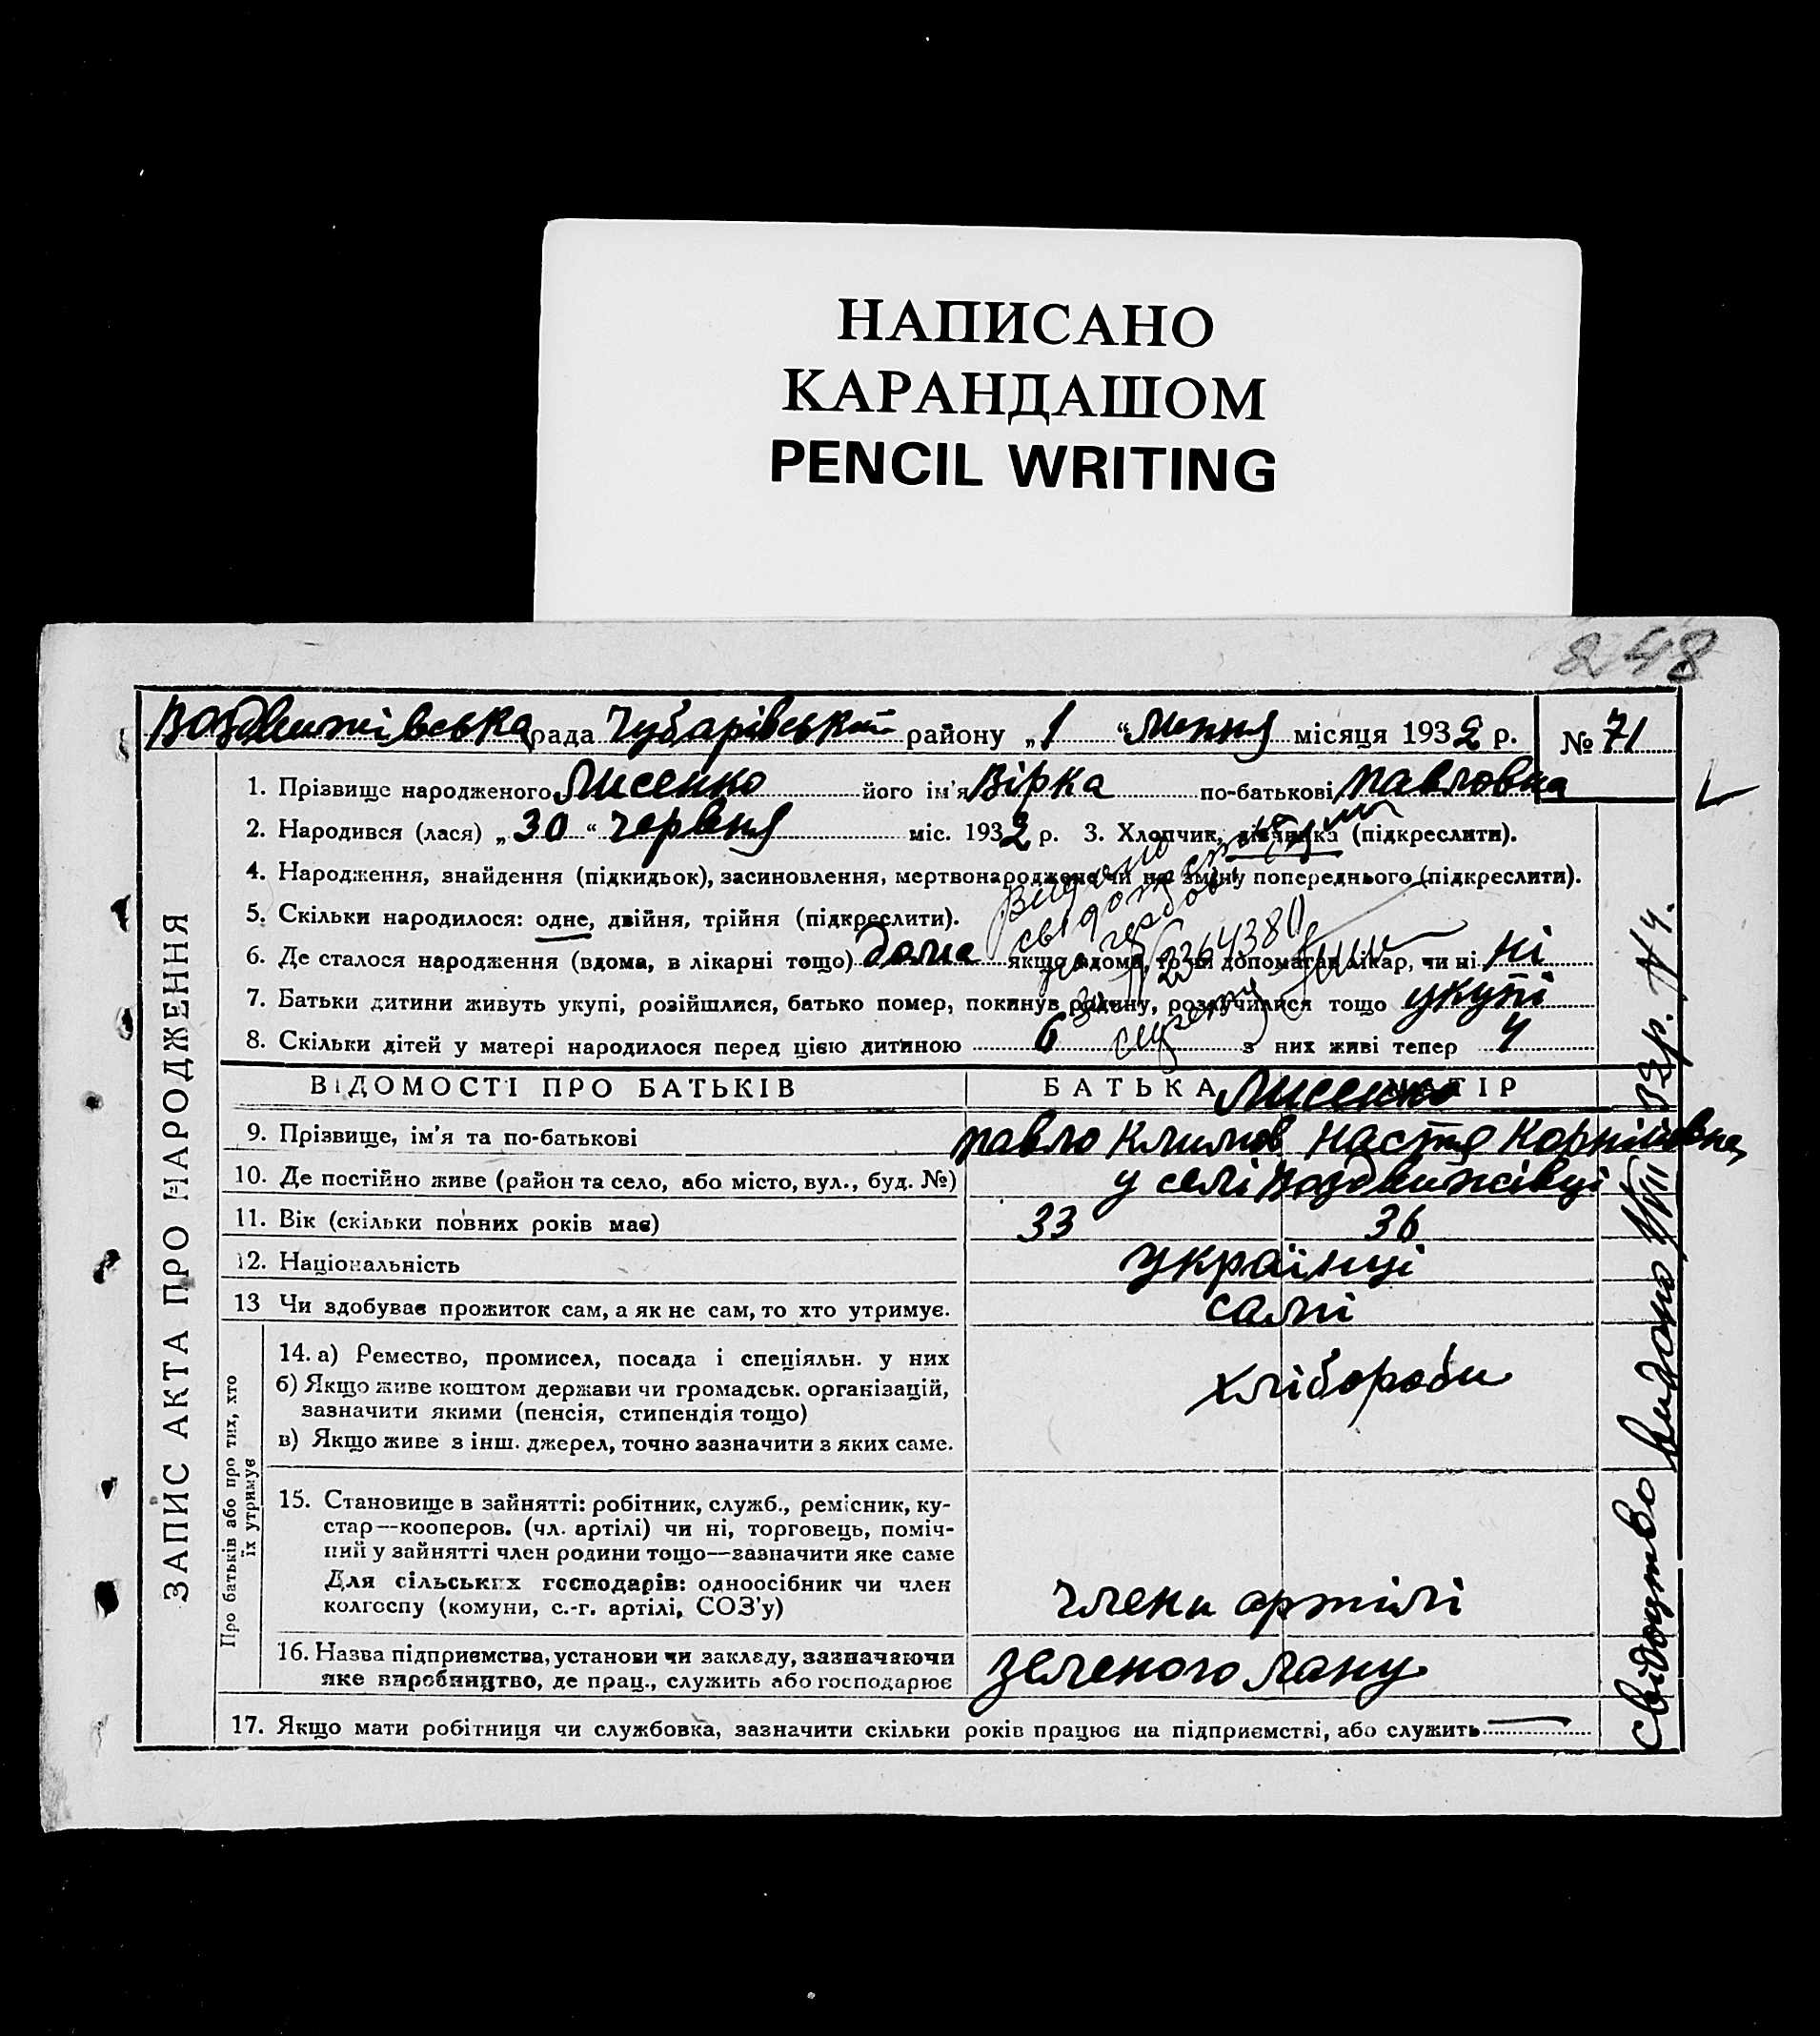 НАПИСАНО
КАРАНДАШОМ
PENCIL WRITING
248
Воздвижівська рада Чубарівський району „1“ липня місяця 1932 р. № 71
ЗАПИС АКТА ПРО НАРОДЖЕННЯ
1. Прізвище народженого Лисенко його ім'я Вірка по-батькові Павловна
2. Народився (лася) „30“ червня міс. 1932 р. 3. Хлопчик, дівчинка (підкреслити).
4. Народження, знайдення (підкидьок), засиновлення, мертвонароджене чи на зміну попереднього (підкреслити).
5. Скільки народилося: одне, двійня, трійня (підкреслити).
6. Де сталося народження (вдома, в лікарні тощо) дома якщо вдома, то чи допомагав лікар, чи ні ні
7. Батьки дитини живуть укупі, розійшлися, батько помер, покинув родину, розлучилися тощо укупі
8. Скільки дітей у матері народилося перед цією дитиною 6 з них живі тепер 4
Видано
2364380
ВІДОМОСТІ ПРО БАТЬКІВ БАТЬКА МАТІР
Лисенко
9. Прізвище, ім'я та по-батькові Павло Климов Настя Корнійовна
10. Де постійно живе (район та село, або місто, вул., буд. №) у селі Воздвижівці
11. Вік (скільки повних років має) 33 36
12. Національність українці
13 Чи здобуває прожиток сам, а як не сам, то хто утримує. самі
Про батьків або про тих, хто
їх утримує
14. а) Ремество, промисел, посада і спеціяльн. у них
б) Якщо живе коштом держави чи громадськ. організацій,
зазначити якими (пенсія, стипендія тощо)
в) Якщо живе з інш. джерел, точно зазначити з яких саме.
хлібороби
15. Становище в зайнятті: робітник, служб., ремісник, ку-
стар—кооперов. (чл. артілі) чи ні, торговець, поміч-
ний у зайнятті член родини тощо—зазначити яке саме
Для сільських господарів: одноосібник чи член
колгоспу (комуни, с.-г. артілі, СОЗ'у)
члени артілі
16. Назва підприємства, установи чи закладу, зазначаючи
яке виробництво, де прац., служить або господарює
зеленого лану
17. Якщо мати робітниця чи службовка, зазначити скільки років працює на підприємстві, або служить —
Свідоцтво видано 32 р. № 4.